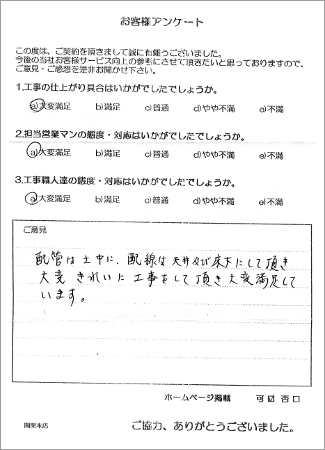 お客様アンケート
この度は、ご契約を頂きまして誠に有難うございました。
今後の当社お客様サービス向上の参考にさせて頂きたいと思っておりますので、
ご意見・ご感想を是非お聞かせ下さい。
1.工事の仕上がり具合はいかがでしたでしょうか。
a)大変満足 b)満足 c)普通 d)やや不満 e)不満
2.担当営業マンの態度・対応はいかがでしたでしょうか。
a)大変満足 b)満足 c)普通 d)やや不満 e)不満
3.工事職人達の態度・対応はいかがでしたでしょうか。
a)大変満足 b)満足 c)普通 d)やや不満 e)不満
ご意見
配管は土中に、配線は天井及び床下にして頂き
大変きれいに工事をして頂き大変満足して
います。
ホームページ掲載 可 否
関東本店
ご協力、ありがとうございました。